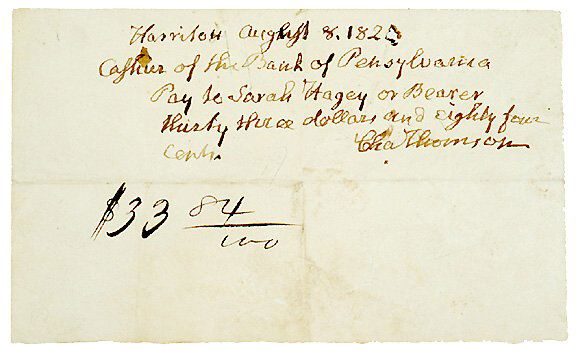 Harrison August 8. 182
Cashier of the Bank of Pensylvania
Pay to Sarah Hagey or Bearer
thirty three dollars and eighty four
cents. Cha Thomson
$33 84/100